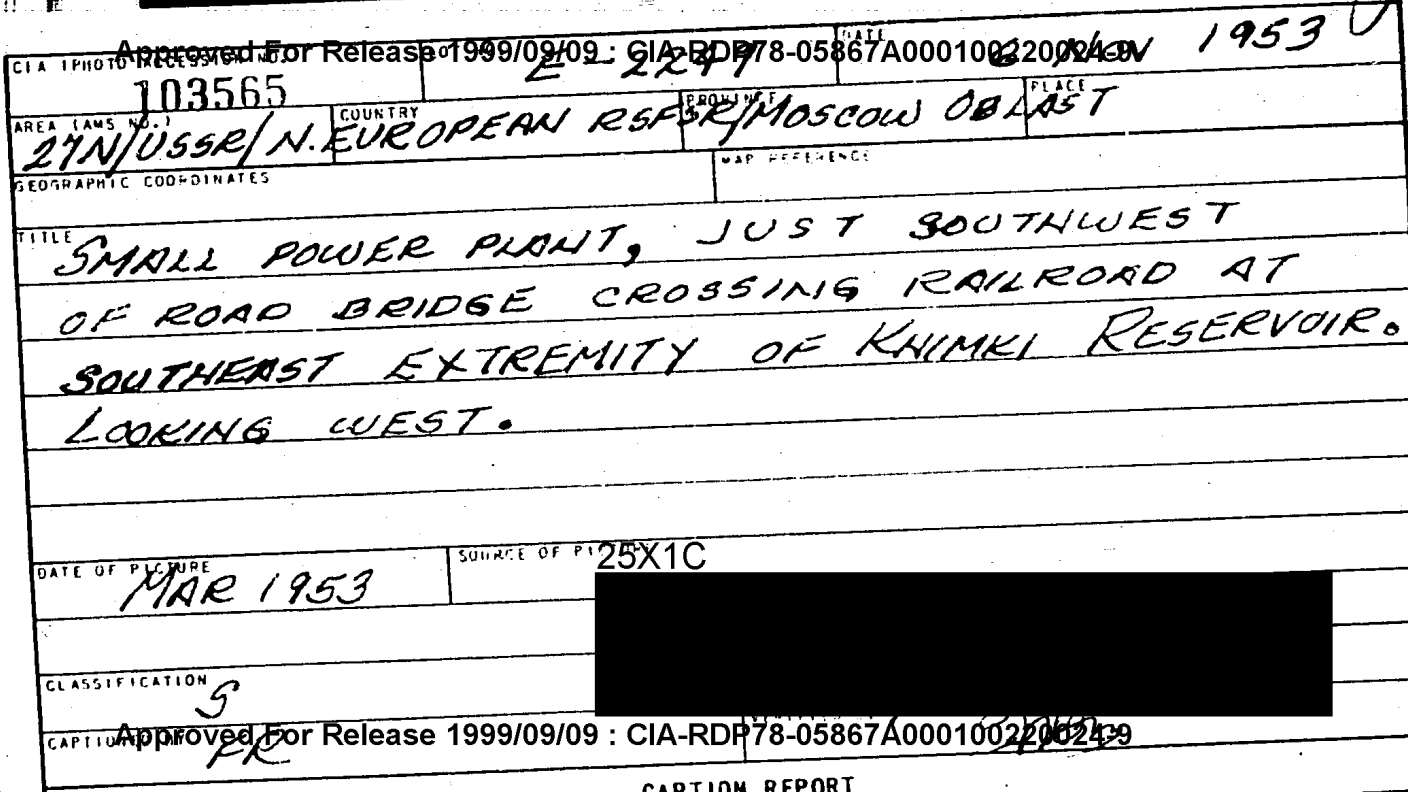 Approved For Release 1999/09/09 : CIA-RDP78-05867A000100220024-9
CIA (PHOTO) ACCESSION NO. DATE
103565 NOV 1953
AREA (AMS NO.) COUNTRY PROVINCE PLACE
27N/USSR/N.EUROPEAN RSFSR/MOSCOW OBLAST
GEOGRAPHIC COORDINATES MAP REFERENCE
TITLE
SMALL POWER PLANT, JUST SOUTHWEST
OF ROAD BRIDGE CROSSING RAILROAD AT
SOUTHEAST EXTREMITY OF KHIMKI RESERVOIR.
LOOKING WEST.
DATE OF PICTURE SOURCE OF 25X1C
MAR 1953
CLASSIFICATION
S
Approved For Release 1999/09/09 : CIA-RDP78-05867A000100220024-9
FR
CAPTION REPORT